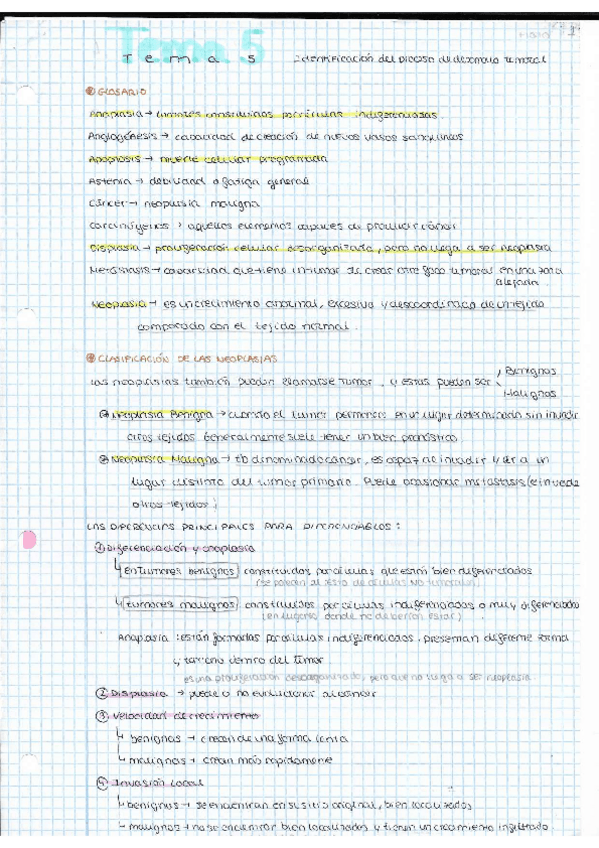 Tema 5 Identificación del proceso de desarrollo tumoral
GLOSARIO
Anaplasia → tumores constituidos por células indiferenciadas.
Angiogénesis → capacidad de creación de nuevos vasos sanguíneos
Apoptosis → muerte celular programada
Astenia → debilidad o fatiga general
Cáncer → neoplasia maligna
Carcinógenos → aquellos elementos capaces de producir cáncer
Displasia → proliferación celular desorganizada, pero no llega a ser neoplasia
Metástasis → capacidad que tiene un tumor de crear otro foco tumoral en una zona
alejada.
Neoplasia → es un crecimiento anormal, excesivo y descoordinado de un tejido
comparado con el tejido normal.
CLASIFICACIÓN DE LAS NEOPLASIAS
Las neoplasias también pueden llamarse tumor, y estas pueden ser
Benignos
Malignos
Neoplasia Benigna → cuando el tumor permanece en un lugar determinado sin invadir
otros tejidos. Generalmente suele tener un buen pronóstico.
Neoplasia Maligna → tb denominado cáncer, es capaz de invadir y ir a un
lugar distinto del tumor primario. Puede ocasionar metástasis (e invade
otros tejidos)
LAS DIFERENCIAS PRINCIPALES PARA DIFERENCIARLOS:
① Diferenciación y anaplasia
↳ en tumores benignos constituidos por células que están bien diferenciadas
(se parecen al resto de células no tumorales)
↳ tumores malignos constituidos por células indiferenciadas o muy diferenciadas
(en lugares donde no deberían estar)
Anaplasia: están formadas por células indiferenciadas. presentan diferente forma
y tamaño dentro del tumor
es una proliferación desorganizada, pero que no llega a ser neoplasia
② Displasia → puede o no evolucionar a cáncer
③ Velocidad de crecimiento
↳ benignas → crecen de una forma lenta
↳ malignas → crecen más rápidamente
④ Invasión local
↳ benignos → se encuentran en su sitio original, bien localizados
↳ malignos → no se encuentran bien localizados y tienen un crecimiento infiltrado